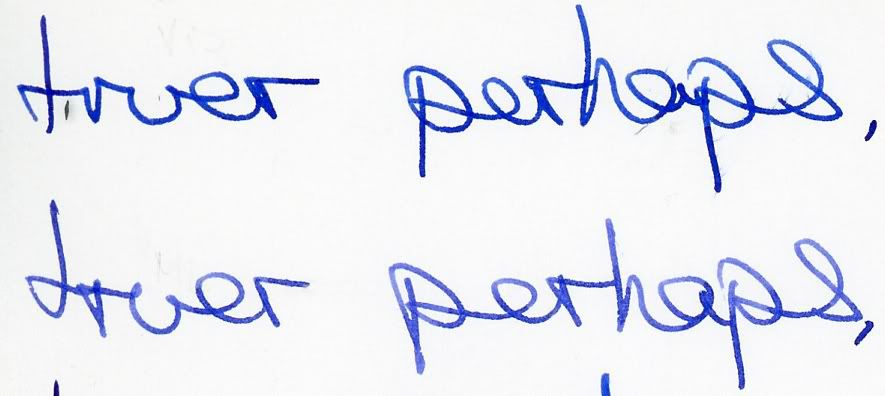 truer perhaps,
truer perhaps,